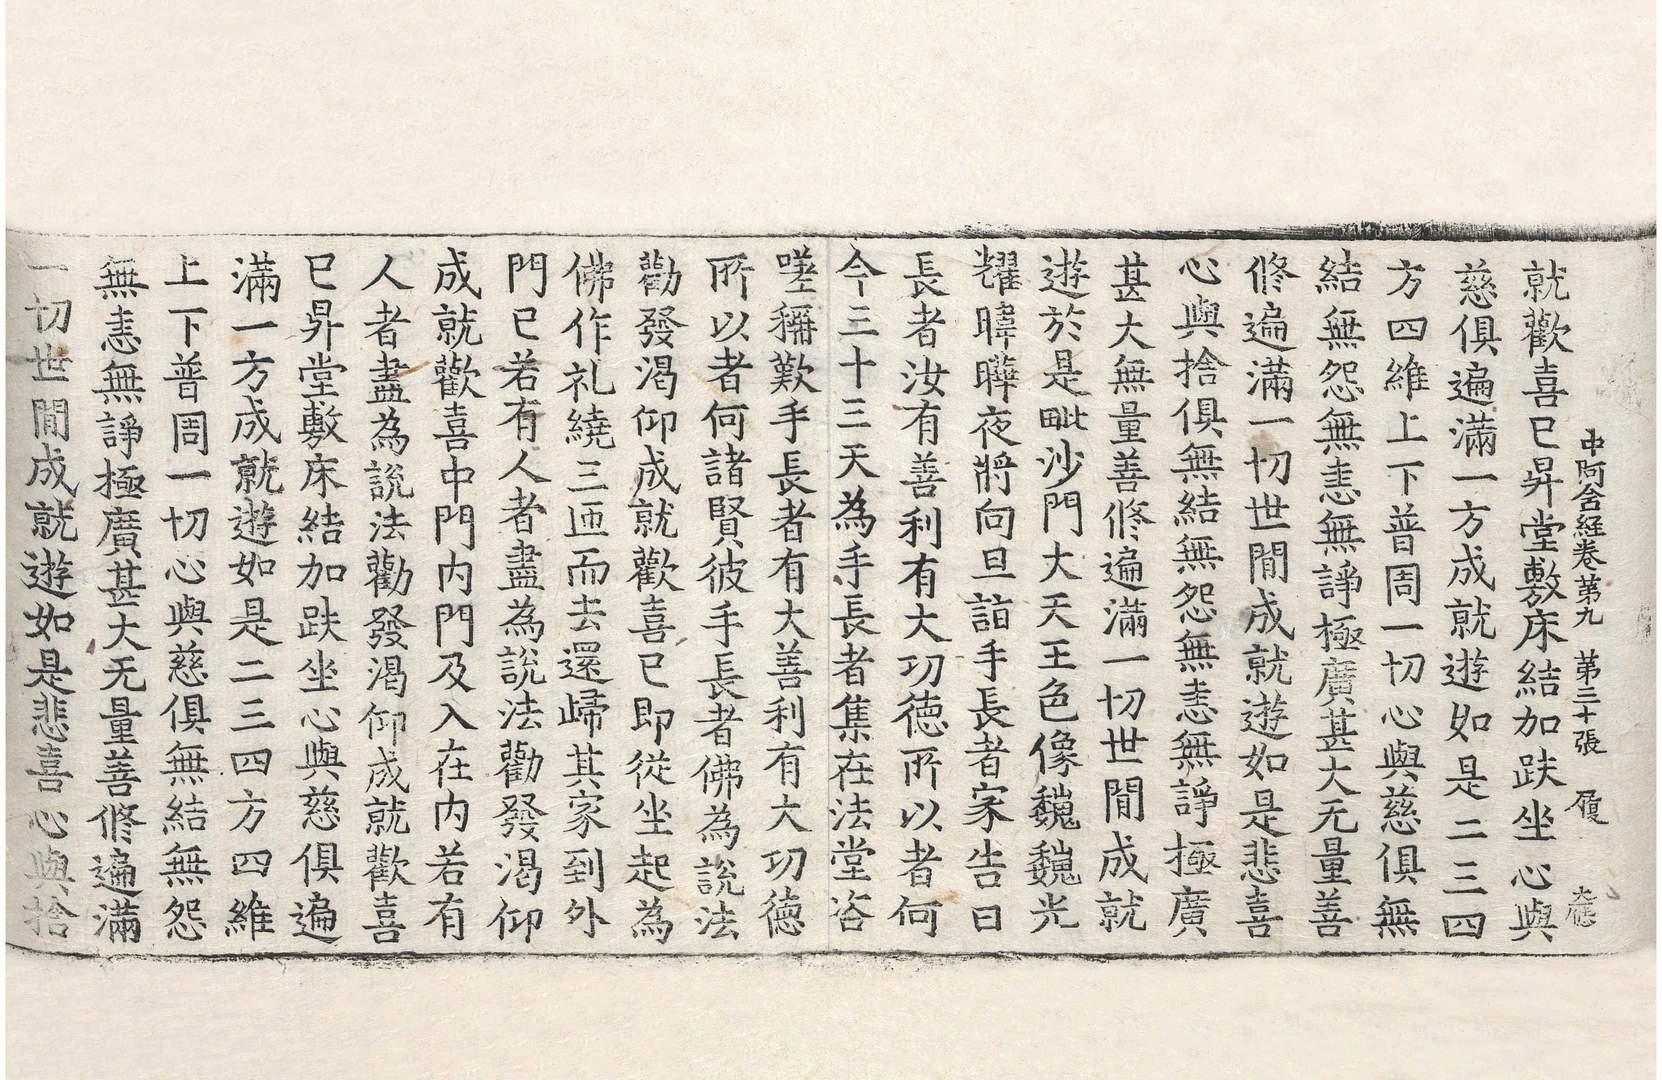 中阿含經卷第九 第二十張 履
就歡喜已昇堂敷床結加趺坐心與
慈俱遍滿一方成就遊如是二三四
方四維上下普周一切心與慈俱無
結無怨無恚無諍極廣甚大无量善
修遍滿一切世間成就遊如是悲喜
心與捨俱無結無怨無恚無諍極廣
甚大無量善修遍滿一切世間成就
遊於是毗沙門大天王色像巍巍光
耀暐曄夜將向旦詣手長者家告曰
長者汝有善利有大功德所以者何
今三十三天為手長者集在法堂咨
嗟稱歎手長者有大善利有大功德
所以者何諸賢彼手長者佛為說法
勸發渴仰成就歡喜已即從坐起為
佛作礼繞三迊而去還歸其家到外
門已若有人者盡為說法勸發渴仰
成就歡喜中門內門及入在內若有
人者盡為說法勸發渴仰成就歡喜
已昇堂敷床結加趺坐心與慈俱遍
滿一方成就遊如是二三四方四維
上下普周一切心與慈俱無結無怨
無恚無諍極廣甚大无量善修遍滿
一切世間成就遊如是悲喜心與捨